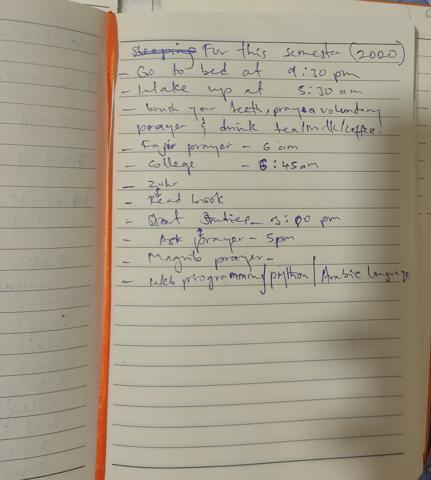 For this semester (2020)
- Go to bed at 9:30 pm
- Wake up at 5:30 am
- brush your teeth, pray a voluntary
prayer & drink tea/milk/coffee.
- Fajir prayer - 6 am
- College - 6:45am
- Zuhr
- Read book
- Start Studies - 3:00 pm
- Asr prayer - 5pm
- Magrib prayer -
- Web programming/python/Arabic Language